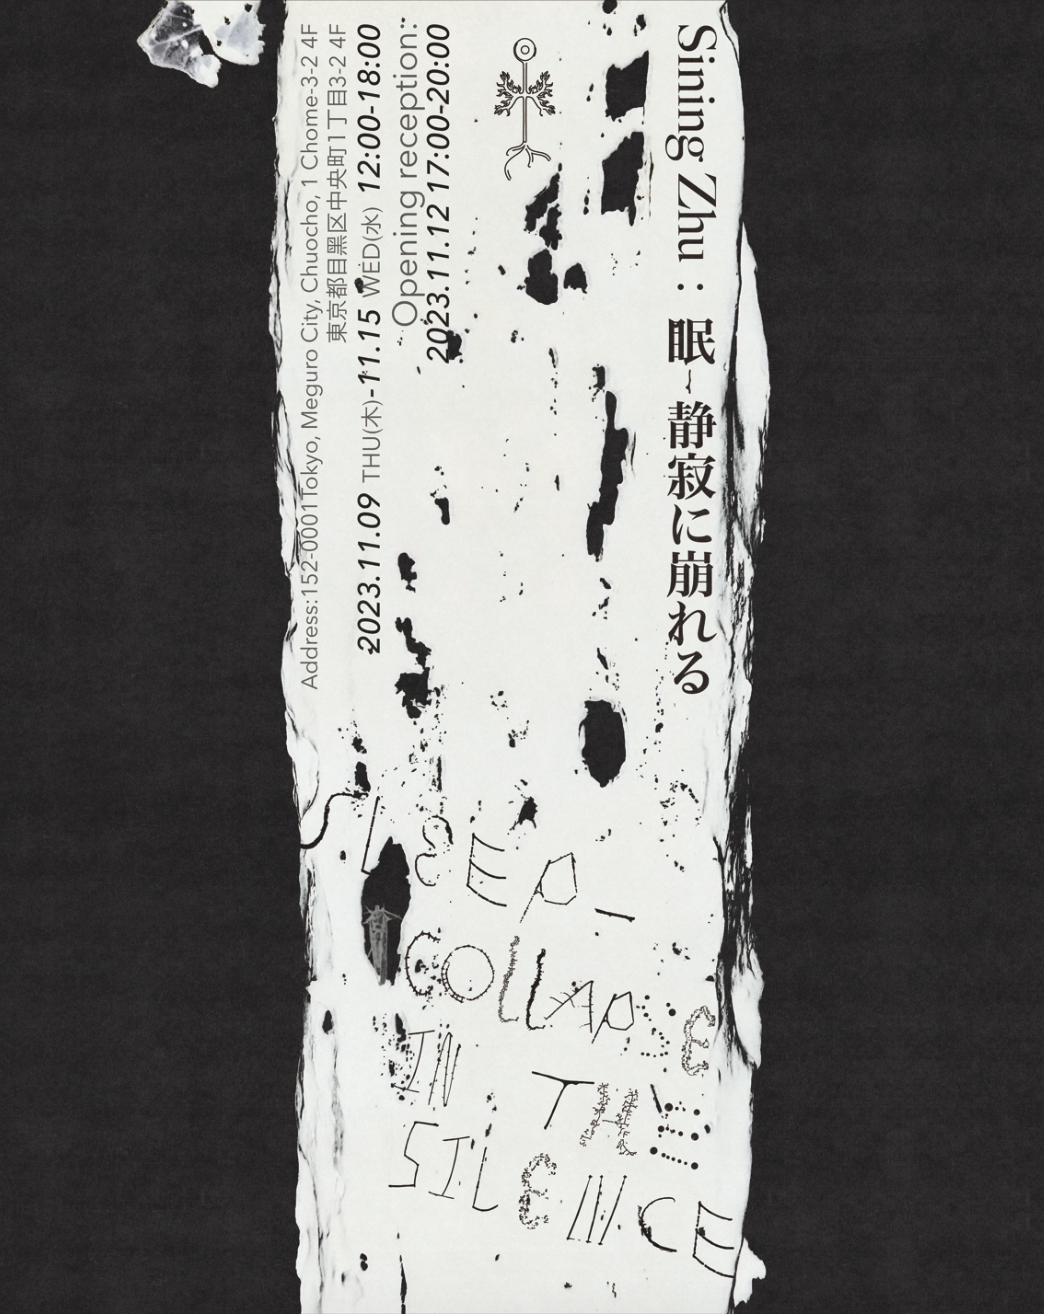 Sining Zhu : 眠~静寂に崩れる
Opening reception:
2023.11.12 17:00-20:00
2023.11.09 THU(木)-11.15 WED(水) 12:00-18:00
東京都目黒区中央町1丁目3-2 4F
Address:152-0001Tokyo, Meguro City, Chuocho, 1 Chome-3-2 4F
SLEEP-
COLLAPSE
IN THE
SILENCE